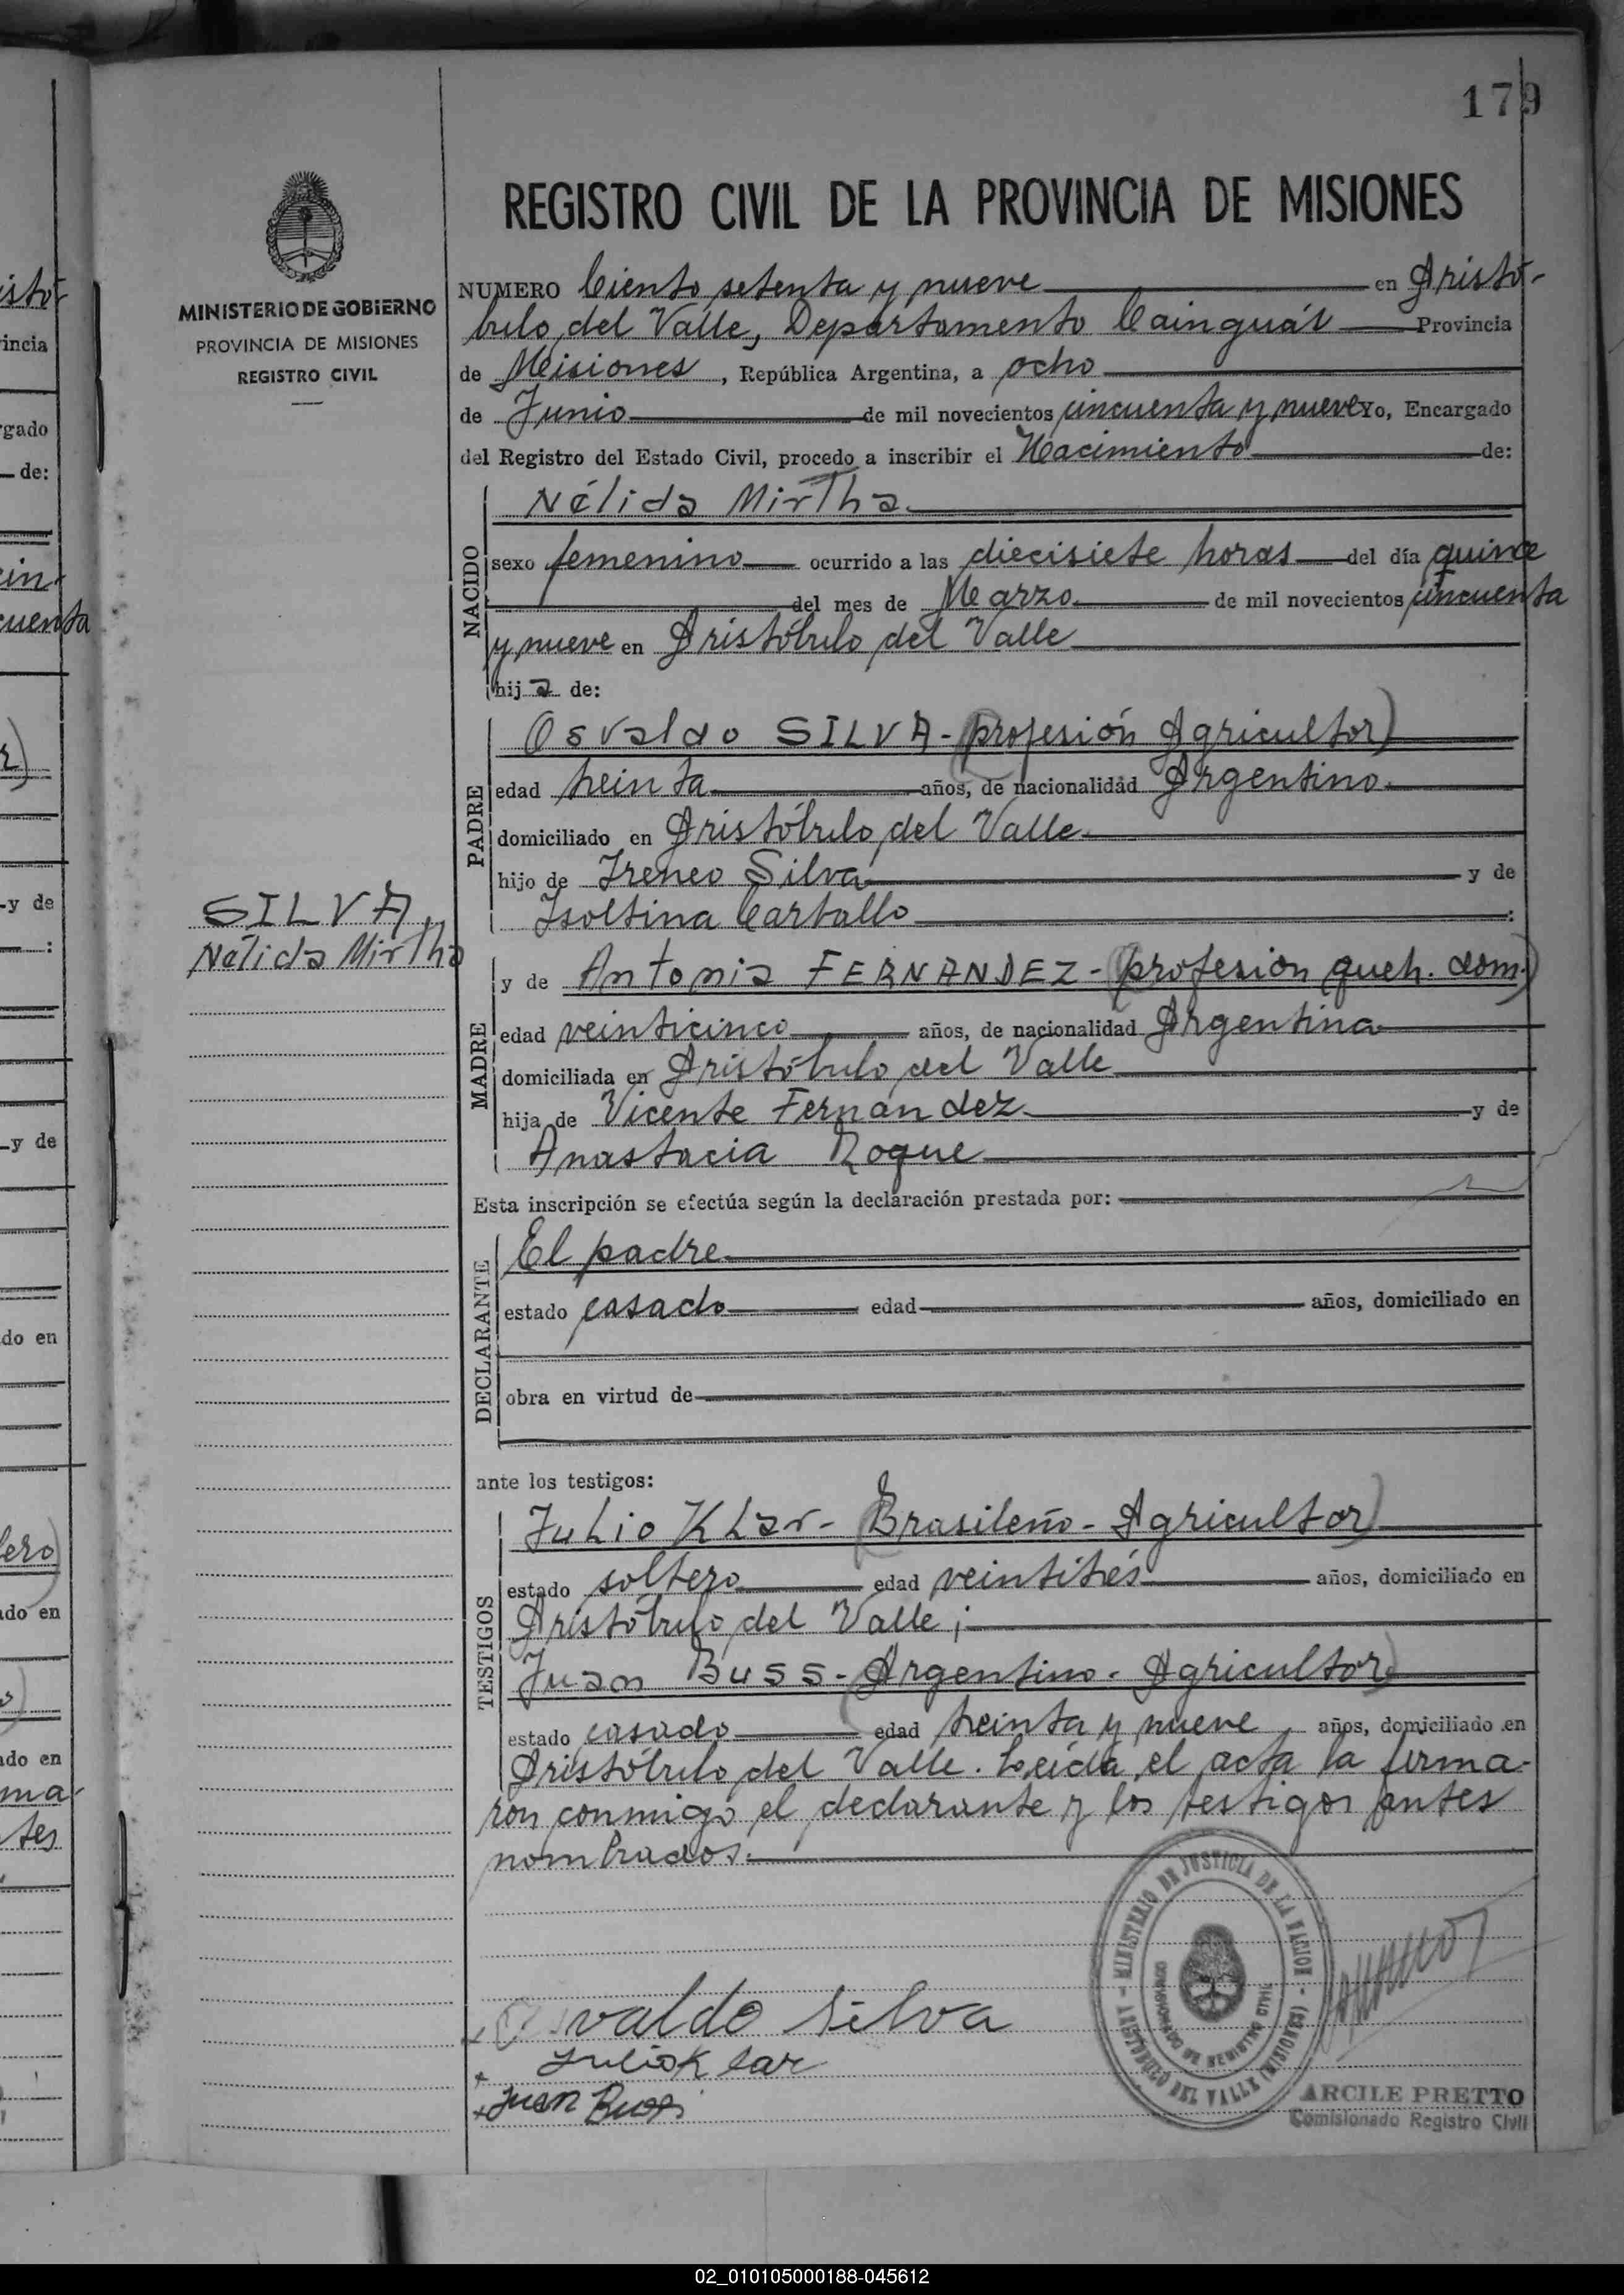 179
MINISTERIO DE GOBIERNO
PROVINCIA DE MISIONES
REGISTRO CIVIL
REGISTRO CIVIL DE LA PROVINCIA DE MISIONES
NUMERO Ciento setenta y nueve en Aristó-
bulo del Valle, Departamento Cainguás Provincia
de Misiones, República Argentina, a ocho
de Junio de mil novecientos cincuenta y nueve Yo, Encargado
del Registro del Estado Civil, procedo a inscribir el Nacimiento de:
NACIDO
Nélida Mirtha
sexo femenino ocurrido a las diecisiete horas del día quince
del mes de Marzo de mil novecientos cincuenta
y nueve en Aristóbulo del Valle
hija de:
PADRE
Osvaldo SILVA - (profesión Agricultor)
edad treinta años, de nacionalidad Argentino
domiciliado en Aristóbulo del Valle
hijo de Ireneo Silva y de
Isoltina Carballo :
SILVA,
Nélida Mirtha
MADRE
y de Antonia FERNANDEZ - (profesión queh. dom.)
edad veinticinco años, de nacionalidad Argentina
domiciliada en Aristóbulo del Valle
hija de Vicente Fernández y de
Anastacia Roque
Esta inscripción se efectúa según la declaración prestada por:
DECLARANTE
El padre
estado casado edad años, domiciliado en
obra en virtud de
ante los testigos:
TESTIGOS
Julio Klar - (Brasileño - Agricultor)
estado soltero edad veintitrés años, domiciliado en
Aristóbulo del Valle;
Juan Buss - (Argentino - Agricultor)
estado casado edad treinta y nueve, años, domiciliado en
Aristóbulo del Valle. Leída el acta la firma-
ron conmigo el declarante y los testigos antes
nombrados.
Osvaldo Silva
Julio Klar
Juan Buss
MINISTERIO DE JUSTICIA DE LA NACION
ARISTOBULO DEL VALLE (MISIONES)
COMISIONADO DE REGISTRO CIVIL
ARCILE PRETTO
Comisionado Registro Civil
02_010105000188-045612